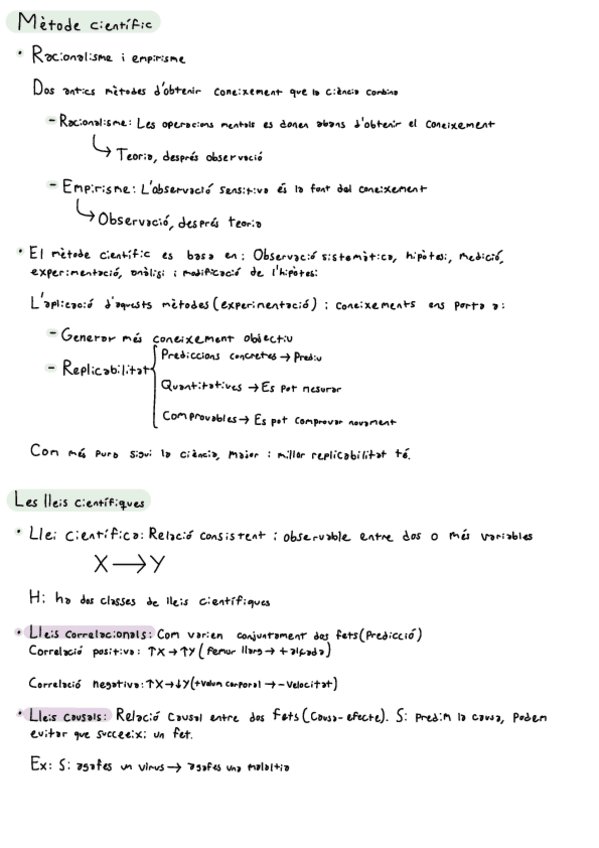 Mètode científic
• Racionalisme i empirisme
Dos antics mètodes d'obtenir coneixement que la ciència combina
- Racionalisme: Les operacions mentals es donen abans d'obtenir el coneixement
↳ Teoria, després observació
- Empirisme: L'observació sensitiva és la font del coneixement
↳ Observació, després teoria
• El mètode científic es basa en: Observació sistemàtica, hipòtesi, medició,
experimentació, anàlisi i modificació de l'hipòtesi
L'aplicació d'aquests mètodes (experimentació) i coneixements ens porta a:
- Generar més coneixement objectiu
- Replicabilitat
Prediccions concretes → Prediu
Quantitatives → Es pot mesurar
Comprovables → Es pot comprovar novament
Com més pura sigui la ciència, major i millor replicabilitat té.
Les lleis científiques
• Llei científica: Relació consistent i observable entre dos o més variables
X → Y
Hi ha dos classes de lleis científiques
• Lleis correlacionals: Com varien conjuntament dos fets (Predicció)
Correlació positiva: ↑X → ↑Y (Femur llarg → + alçada)
Correlació negativa: ↑X → ↓Y (+ volum corporal → - velocitat)
• Lleis causals: Relació causal entre dos fets (Causa-efecte). Si predim la causa, podem
evitar que succeeixi un fet.
Ex: Si agafes un virus → agafes una malaltia